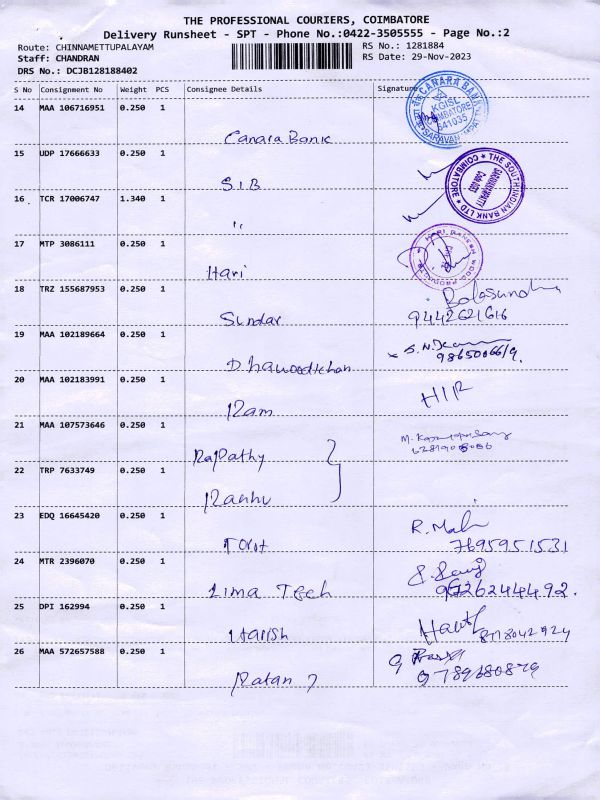 THE PROFESSIONAL COURIERS, COIMBATORE
Delivery Runsheet - SPT - Phone No.:0422-3505555 - Page No.:2
Route: CHINNAMETTUPALAYAM RS No.: 1281884
Staff: CHANDRAN RS Date: 29-Nov-2023
DRS No.: DCJB128188402
S No Consignment No Weight PCS Consignee Details Signature
14 MAA 106716951 0.250 1
CANARA BANK
KGISL
COIMBATORE
641035
SARAVAN
Canara Bank
15 UDP 17666633 0.250 1
THE SOUTH INDIAN BANK LTD
COIMBATORE
S.I.B
16 TCR 17006747 1.340 1
"
17 MTP 3086111 0.250 1
Hari
18 TRZ 155687953 0.250 1
Sundar 9442621616
19 MAA 102189664 0.250 1
Dhawoodkhan
20 MAA 102183991 0.250 1
Ram
21 MAA 107573646 0.250 1
Rajpathy
22 TRP 7633749 0.250 1
23 EDQ 16645420 0.250 1 R. Mali
7695951531
24 MTR 2396070 0.250 1
Lima Tech
25 DPI 162994 0.250 1
Harish
26 MAA 572657588 0.250 1
Ratan 9789680879